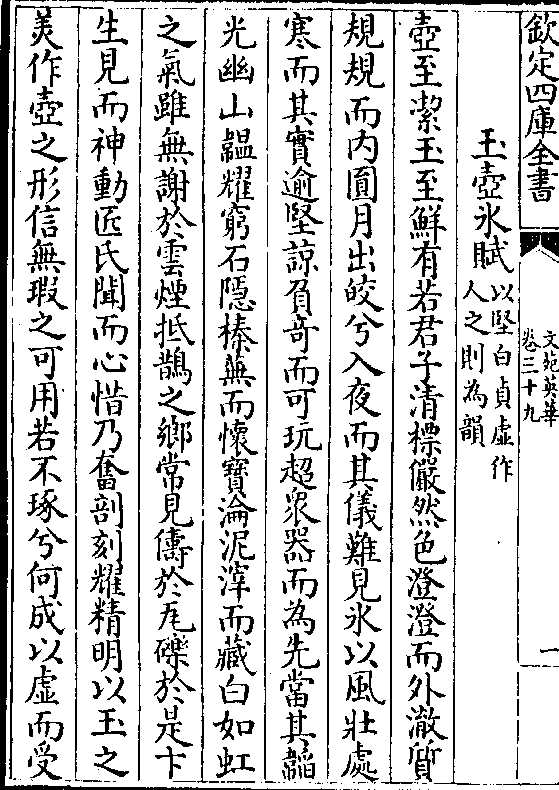 欽定四庫全書
文苑英華
卷三十九
一
玉壺氷賦
以堅白貞虛作
人之則為韻
壺至潔玉至鮮有若君子清標儼然色澄澄而外澈質
規規而内圓月出皎兮入夜而其儀難見氷以風壯處
寒而其實逾堅諒負竒而可玩超衆器而為先當其韜
光幽山韞耀窮石隱榛蕪而懷寳淪泥滓而藏白如虹
之氣雖無謝於雲煙抵鵲之鄉常見儔於瓦礫於是卞
生見而神動匠氏聞而心惜乃奮剖刻耀精明以玉之
美作壺之形信無瑕之可用若不琢兮何成以虛而受